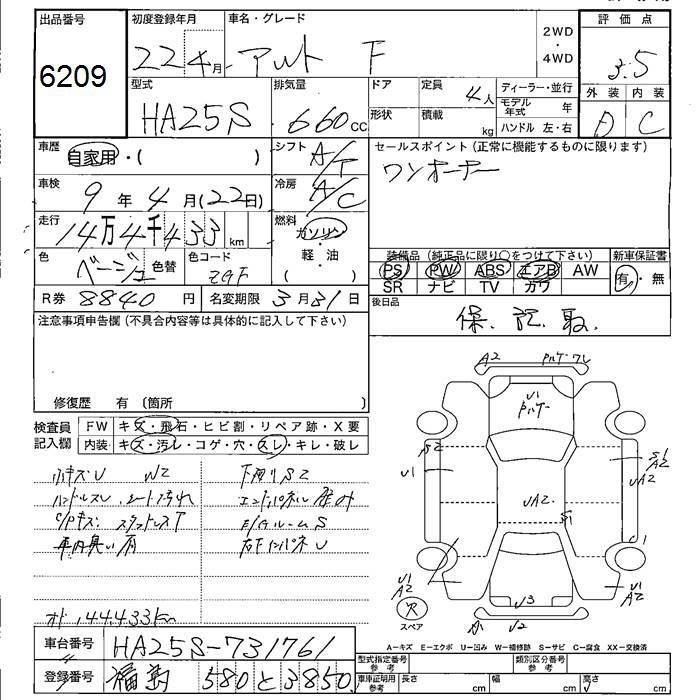 出品番号 初度登録年月 車名・グレード 2WD・4WD 評価点
6209 22年4月 アルト F 3.5
型式 排気量 ドア 定員 4人 ディーラー・並行 外装 内装
HA25S 660cc 形状 積載 kg モデル年式 年 D C
ハンドル 左・右
車歴 自家用・( ) シフト A/T セールスポイント (正常に機能するものに限ります)
車検 9年4月(22日) 冷房 A/C ワンオーナー
走行 14万4千433km 燃料 ガソリン・軽・油 ( )
色 ベージュ 色替 色コード ZGF 装備品 (純正品に限り○をつけて下さい) 新車保証書
PS PW ABS エアB AW 有・無
SR ナビ TV カワ
R券 8840円 名変期限 3月31日 後日品
保.記.取.
注意事項申告欄(不具合内容等は具体的に記入して下さい)
修復歴 有 〔箇所 〕
検査員記入欄 FW キズ・飛石・ヒビ割・リペア跡・X要
内装 キズ・汚レ・コゲ・穴・スレ・キレ・破レ
小キズU W2 下廻りS2
ハンドルスレ シート汚れ
エンジンルームS
オド 144,433km
A2
U1
S2
U1
S1
A2
UA2
UA2.
S1
U1
A2
U3
U2
スペア
A-キズ E-エクボ U-凹み W-補修跡 S-サビ C-腐食 XX-交換済
車台番号 HA25S-731761
登録番号 福島 580 と 3850
型式指定番号 参考 類別区分番号 参考
自動車寸法 参考 長さ cm 幅 cm 高さ cm